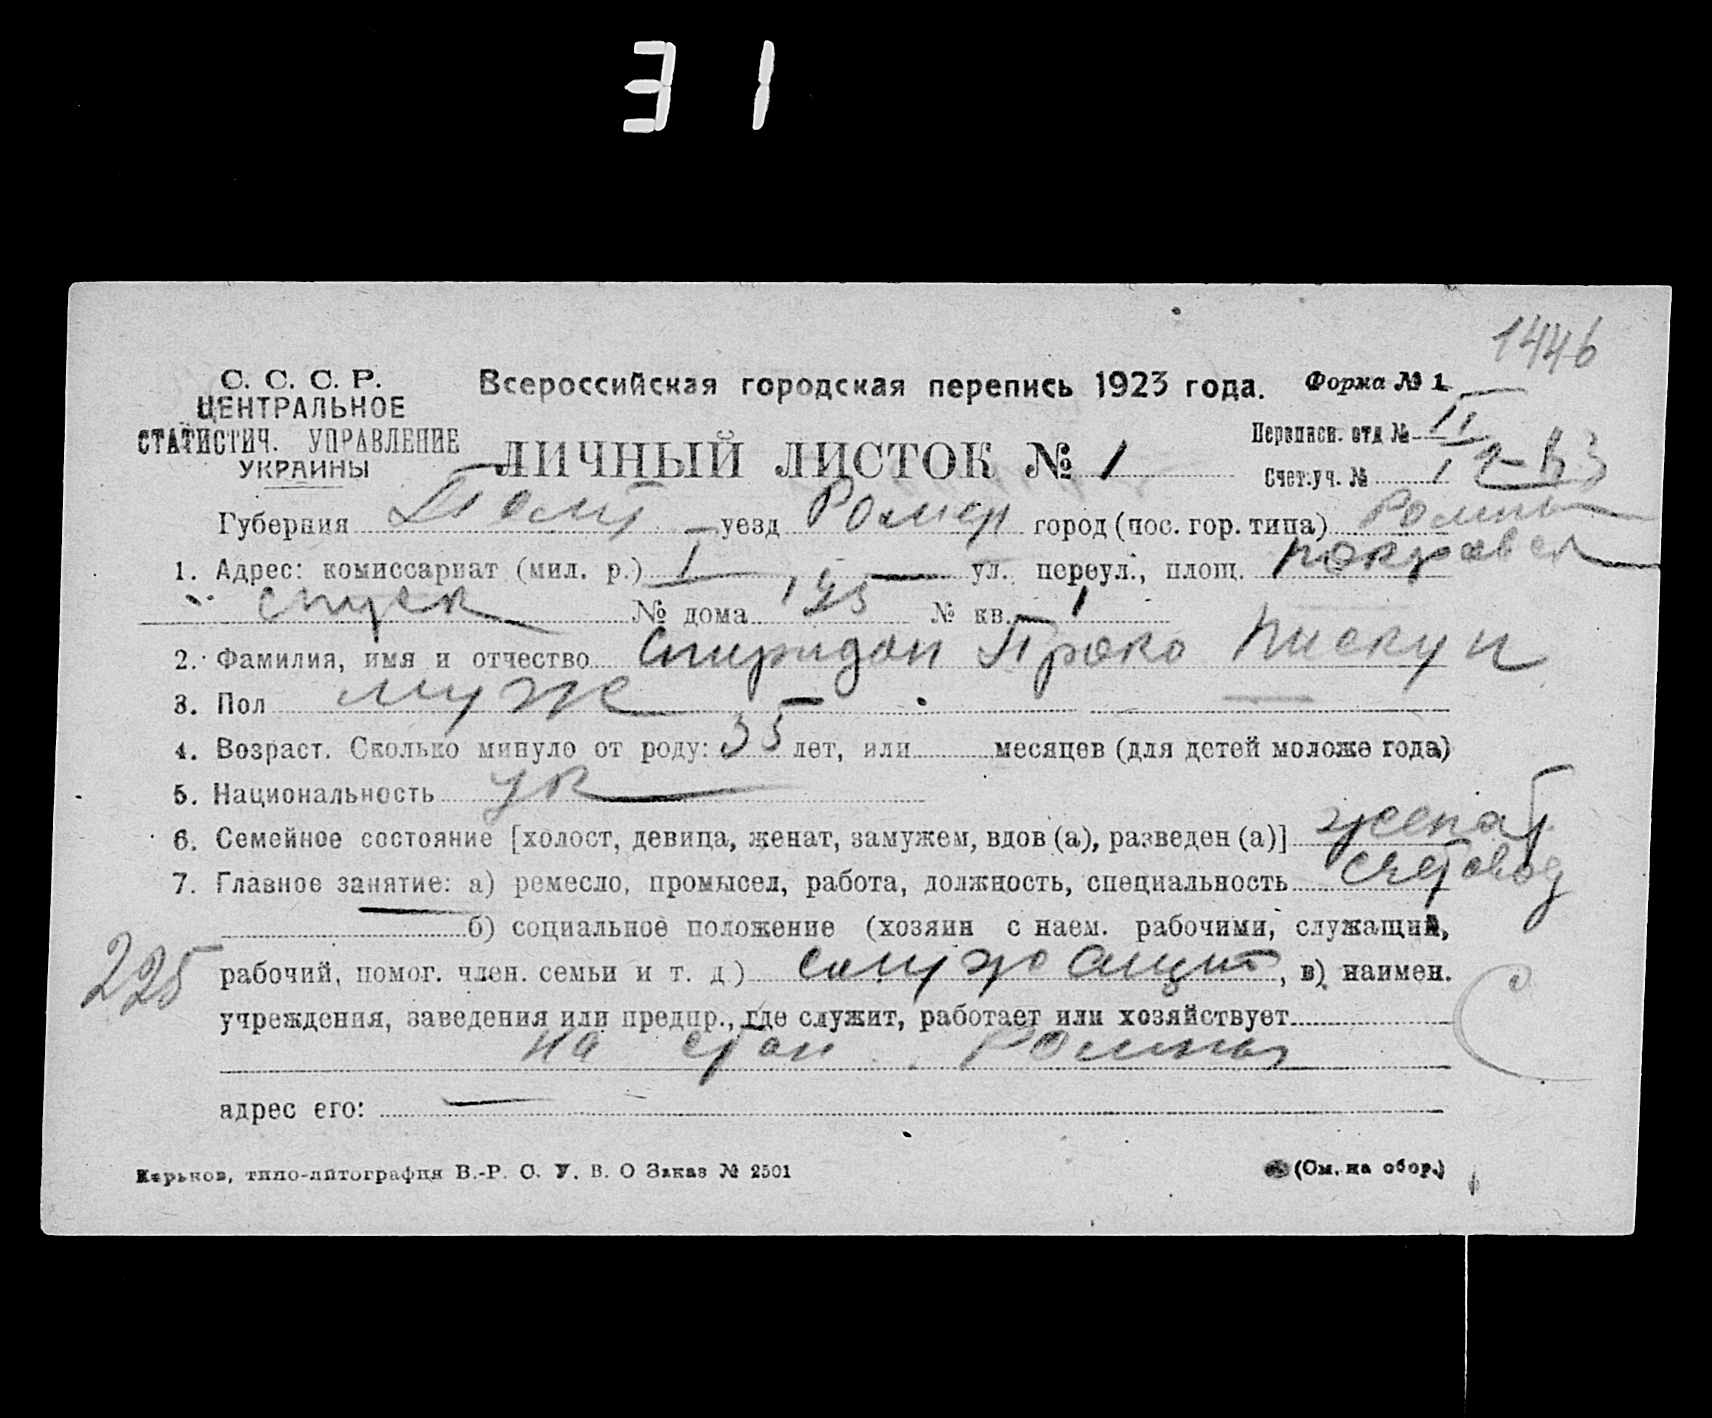 31
1446
С. С. С. Р.
ЦЕНТРАЛЬНОЕ
СТАТИСТИЧ. УПРАВЛЕНИЕ
УКРАИНЫ
Всероссийская городская перепись 1923 года.
Форма № 1
ЛИЧНЫЙ ЛИСТОК № 1
Переписн. отд № II
Счет.уч. №
Губерния Полт уезд Ромен город (пос. гор. типа) Ромны
1. Адрес: комиссариат (мил. р.) I ул. переул., площ. Покровск
спуск № дома № кв. 1
2. Фамилия, имя и отчество Спиридон Проко Пискун
3. Пол муж
4. Возраст. Сколько минуло от роду: 35 лет, или месяцев (для детей моложе года)
5. Национальность ук
6. Семейное состояние [холост, девица, женат, замужем, вдов (а), разведен (а)] женат
7. Главное занятие: а) ремесло, промысел, работа, должность, специальность счетовод
б) социальное положение (хозяин с наем. рабочими, служащий,
225
рабочий, помог. член. семьи и т. д) служащий, в) наимен.
учреждения, заведения или предпр., где служит, работает или хозяйствует
на стан Ромны
адрес его: —
Харьков, типо-литография В.-Р. С. У. В. О Заказ № 2501
(См. на обор.)